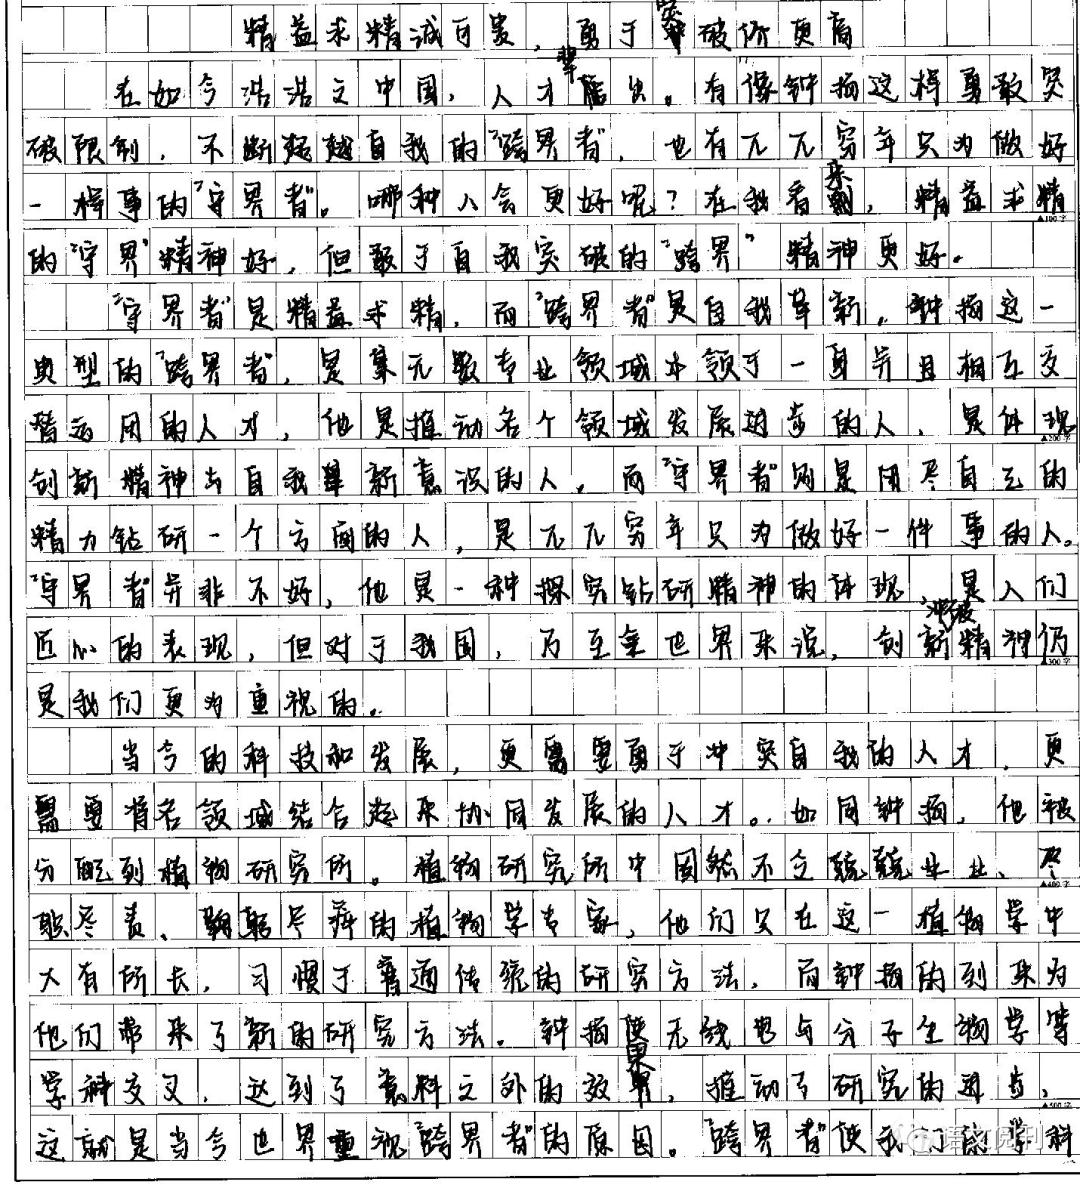 精益求精诚可贵，勇于突破价更高
在如今浩浩之中国，人才辈出。有像钟扬这样勇敢突
破限制，不断超越自我的“跨界者”，也有兀兀穷年只为做好
一样事的“守界者”。哪种人会更好呢？在我看来，精益求精
的“守界”精神好，但敢于自我突破的“跨界”精神更好。
“守界者”是精益求精，而“跨界者”是自我革新。钟扬这一
典型的“跨界者”，是集无数专业领域本领于一身并且相互交
替运用的人才，他是推动各个领域发展进步的人，是体现
创新精神与自我革新意识的人。而“守界者”则是用尽自己的
精力钻研一个方面的人，是兀兀穷年只为做好一件事的人。
“守界者”并非不好，他是一种探究钻研精神的体现，是人们
匠心的表现，但对于我国，乃至全世界来说，冲破创新精神仍
是我们更为重视的。
当今的科技和发展，更需要勇于冲突自我的人才，更
需要将各领域结合起来协同发展的人才。如同钟扬，他被
分配到植物研究所。植物研究所中固然不乏兢兢业业、尽
职尽责、鞠躬尽瘁的植物学专家，他们只在这一植物学中
大有所长，习惯于普通传统的研究方法，而钟扬的到来为
他们带来了新的研究方法。钟扬使无线电与分子生物学等
学科交叉，达到了意料之外的效果，推动了研究的进步，
这就是当今世界重视“跨界者”的原因。“跨界者”使我们的学科
▲100字
▲200字
▲300字
▲400字
▲500字
语文阅刊